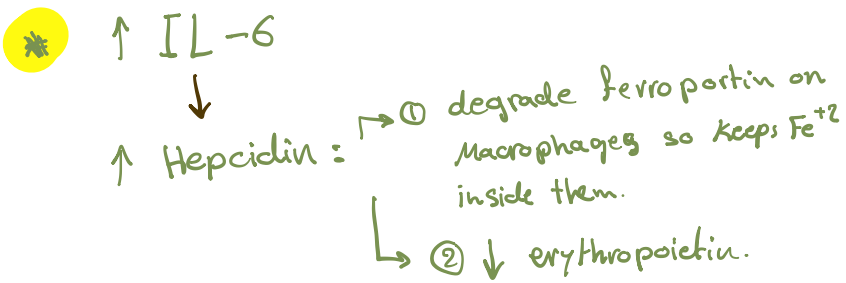 * ↑ IL-6
↓
↑ Hepcidin :
→ ① degrade ferroportin on
Macrophages so keeps Fe⁺²
inside them.
→ ② ↓ erythropoietin.